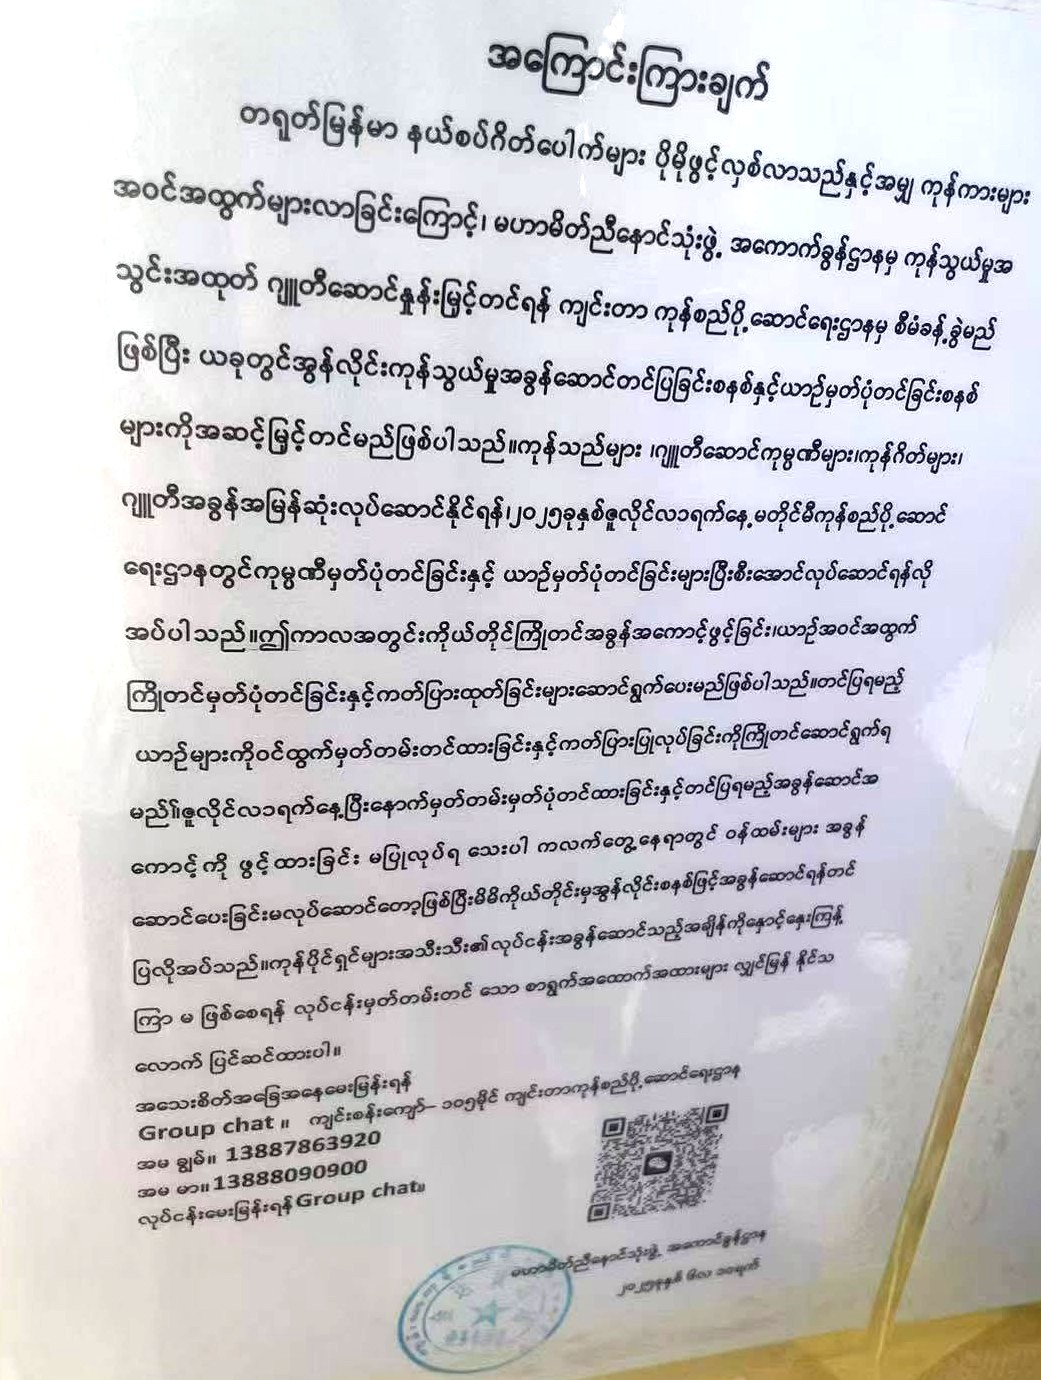 အကြောင်းကြားချက်
တရုတ်မြန်မာ နယ်စပ်ဂိတ်ပေါက်များ ပိုမိုဖွင့်လှစ်လာသည်နှင့်အမျှ ကုန်ကားများ
အဝင်အထွက်များလာခြင်းကြောင့်၊ မဟာမိတ်ညီနောင်သုံးဖွဲ့ အကောက်ခွန်ဌာနမှ ကုန်သွယ်မှုအ
သွင်းအထုတ် ဂျူတီဆောင်နှုန်းမြှင့်တင်ရန် ကျင်းတာ ကုန်စည်ပို့ဆောင်ရေးဌာနမှ စီမံခန့်ခွဲမည်
ဖြစ်ပြီး ယခုတွင်အွန်လိုင်းကုန်သွယ်မှုအခွန်ဆောင်တင်ပြခြင်းစနစ်နှင့်ယာဉ်မှတ်ပုံတင်ခြင်းစနစ်
များကိုအဆင့်မြှင့်တင်မည်ဖြစ်ပါသည်။ကုန်သည်များ ၊ဂျူတီဆောင်ကုမ္ပဏီများ၊ကုန်ဂိတ်များ၊
ဂျူတီအခွန်အမြန်ဆုံးလုပ်ဆောင်နိုင်ရန်၊၂၀၂၅ခုနှစ်ဇူလိုင်လ၁ရက်နေ့ မတိုင်မီကုန်စည်ပို့ဆောင်
ရေးဌာနတွင်ကုမ္ပဏီမှတ်ပုံတင်ခြင်းနှင့် ယာဉ်မှတ်ပုံတင်ခြင်းများပြီးစီးအောင်လုပ်ဆောင်ရန်လို
အပ်ပါသည်။ဤကာလအတွင်းကိုယ်တိုင်ကြိုတင်အခွန်အကောင့်ဖွင့်ခြင်း၊ယာဉ်အဝင်အထွက်
ကြိုတင်မှတ်ပုံတင်ခြင်းနှင့်ကတ်ပြားထုတ်ခြင်းများဆောင်ရွက်ပေးမည်ဖြစ်ပါသည်။တင်ပြရမည့်
ယာဉ်များကိုဝင်ထွက်မှတ်တမ်းတင်ထားခြင်းနှင့်ကတ်ပြားပြုလုပ်ခြင်းကိုကြိုတင်ဆောင်ရွက်ရ
မည်။ဇူလိုင်လ၁ရက်နေ့ပြီးနောက်မှတ်တမ်းမှတ်ပုံတင်ထားခြင်းနှင့်တင်ပြရမည့်အခွန်ဆောင်အ
ကောင့်ကို ဖွင့်ထားခြင်း မပြုလုပ်ရ သေးပါ ကလက်တွေ့နေရာတွင် ဝန်ထမ်းများ အခွန်
ဆောင်ပေးခြင်းမလုပ်ဆောင်တော့ဖြစ်ပြီးမိမိကိုယ်တိုင်းမှအွန်လိုင်းစနစ်ဖြင့်အခွန်ဆောင်ရန်တင်
ပြလိုအပ်သည်။ကုန်ပိုင်ရှင်များအသီးသီး၏လုပ်ငန်းအခွန်ဆောင်သည့်အချိန်ကိုနှောင့်နှေးကြန့်
ကြာ မ ဖြစ်စေရန် လုပ်ငန်းမှတ်တမ်းတင် သော စာရွက်အထောက်အထားများ လျှင်မြန် နိုင်သ
လောက် ပြင်ဆင်ထားပါ။
အသေးစိတ်အခြေအနေမေးမြန်းရန်
Group chat ။ ကျင်းစန်းကျော်– ၁၀၅မိုင် ကျင်းတာကုန်စည်ပို့ဆောင်ရေးဌာန
အမ ချွမ်။ 13887863920
အမ မာ။ 13888090900
လုပ်ငန်းမေးမြန်းရန်Group chat။
မဟာမိတ်ညီနောင်သုံးဖွဲ့ အကောင်ခွန်ဌာန
၂၀၂၅ခုနှစ် ၆လ ၁၀ရက်